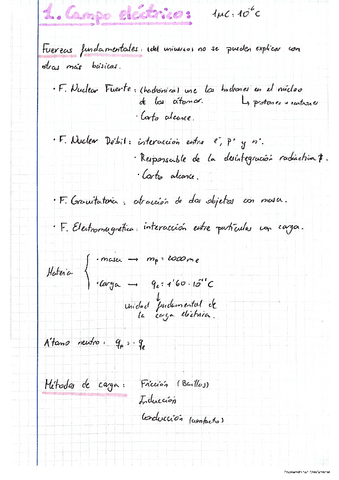 1. Campo eléctrico: 1μC = 10⁻⁶ C
Fuerzas fundamentales: (del universo) no se pueden explicar con
otras más básicas.
· F. Nuclear Fuerte: (hadrónica) une los hadrones en el núcleo
de los átomos. ↳ protones o neutrones
· Corto alcance.
· F. Nuclear Débil: interacción entre e⁻, p⁺ y n⁰.
· Responsable de la desintegración radiactiva β.
· Corto alcance.
· F. Gravitatoria: atracción de dos objetos con masa.
· F. Electromagnética: interacción entre partículas con carga.
Materia
· masa → mp = 2000 me
· carga → qe = 1'60 · 10⁻¹⁹ C
unidad fundamental de
la carga eléctrica.
Átomo neutro: qp = - qe
Métodos de carga: Fricción (Barillas)
Inducción
Conducción (contacto)